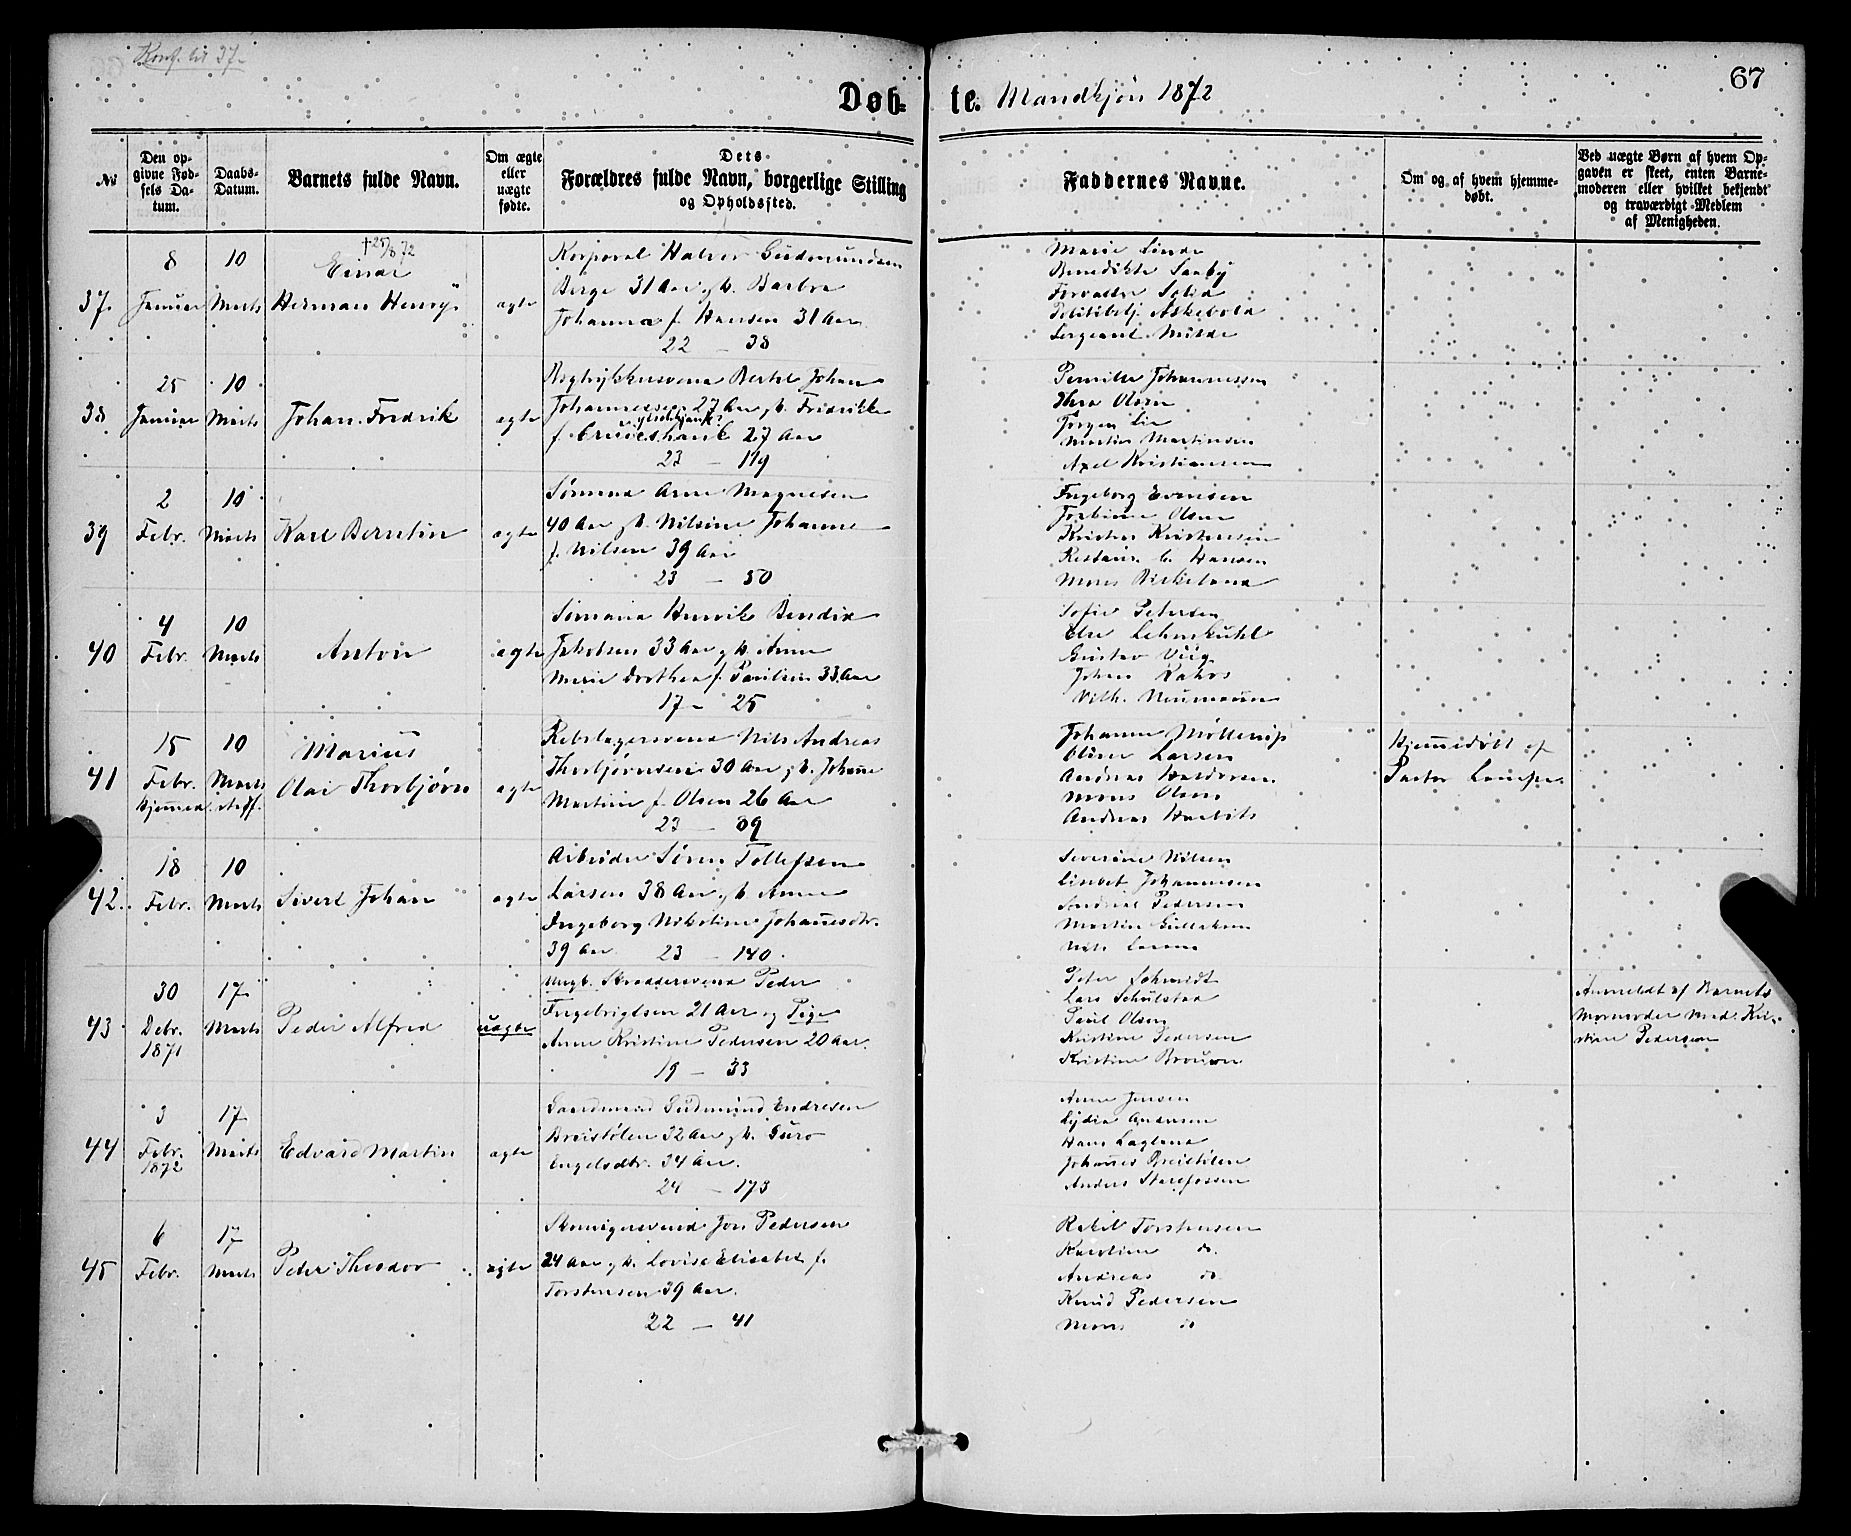 Konf. til 37.
67
Døb- te. Mandkjøn 1872
№
Den op-
givne Fød-
sels Da-
tum.
Daabs-
Datum.
Barnets fulde Navn.
Om ægte
eller
uægte
fødte.
Dets
Forældres fulde Navn, borgerlige Stilling
og Opholdssted.
Faddernes Navne.
Om og af hvem hjemme-
døbt.
Ved uægte Børn af hvem Op-
gaven er skeet, enten Barne-
moderen eller hvilket bekjendt
og troværdigt Medlem
af Menigheden.
37.
8
Januar
10
Marts
† 25/8 72
Einar
Herman Henry
ægte
Korporal Halvor Gudmundsen
Berge 31 Aar g. b. Barbra
Johanna f. Hansen 31 Aar
22 — 38
Marie Linde
Benedikte Saaby
Forvalter Solid
Askevold
Sergeant Milde
38
25
Januar
10
Marts
Johan Fredrik
ægte
Bogtrykkersvend Bertel Johan
Johannessen 27 Aar g. b. Fridrikke
f. 27 Aar
23 — 119
Pernille Johannessen
Thea Olsen
Jørgen Lie
Martin Martinsen
Axel Kristiansen
39
2
Febr.
10
Marts
Karl Berntin
ægte
Sømand Arne Magnesen
40 Aar g. b. Nilsine Johanne
f. Nilsen 39 Aar
23 — 50
Ingeborg Evensen
Torbine Olsen
Kristen Kristensen
Restaur. C. Hansen
Mons Birkeland
40
4
Febr.
10
Marts
Anton
ægte
Sømand Henrik Bendix
Jakobsen 33 Aar g. b. Anne
Marie Dorthea f. Paulsen 33 Aar
17 — 25
Sofie Petersen
Else Lehmkuhl
Gustav Viig
Johan Kahrs
Vilh. Neumann
41
15
Febr.
Hjemmed.
10
Marts
stadf.
Marius
Olai Thorbjørn
ægte
Rebslagersvend Nils Andreas
Thorbjørnsen 30 Aar g. b. Johanne
Martine f. Olsen 26 Aar
23 — 89
Johanne Møllerup
Oline Larsen
Andreas Halvorsen
Mons Olsen
Andreas
Hjemmedøbt af
Pastor Lampe.
42.
18
Febr.
10
Marts
Sivert Johan
ægte
Arbeider Søren Tollefsen
Larsen 38 Aar g. b. Anne
Ingeborg Nikoline Johannesdtr.
39 Aar 23 — 140.
Severine Nilsen
Lisbet Johannesen
Andreas Pedersen
Martin Gullaksen
Nils Larsen
43
30
Debr.
1871
17
Marts
Peder Alfred
uægte
Ungk. Skræddersvend Peder
Ingebrigtsen 21 Aar og Pige
Anne Kristine Pedersen 20 Aar.
19 — 33
Peter Schmidt
Lars Schulstad
Paul Olsen
Kristine Pedersen
Kristine Brouwn
Anmeldt af Barnets
Mormoder Mad. Kri-
stine Pedersen
44
3
Febr.
1872
17
Marts
Edvard Martin
ægte
Gaardmand Gudmund Endresen
Breistølen 32 Aar g. b. Guro
Engelsdtr. 34 Aar.
24 — 173
Anne Jensen
Lydia Andersen
Hans Lagland
Johannes Breistølen
Anders Storefossen
45
6
Febr.
17
Marts
Peder Theodor
ægte
Skomagersvend Jon Pedersen
24 Aar g. b. Lovise Elisabet f.
Torstensen 39 Aar.
22 — 41
Rakel Torstensen
Karoline do.
Andreas do.
Knud Pedersen
Mons do